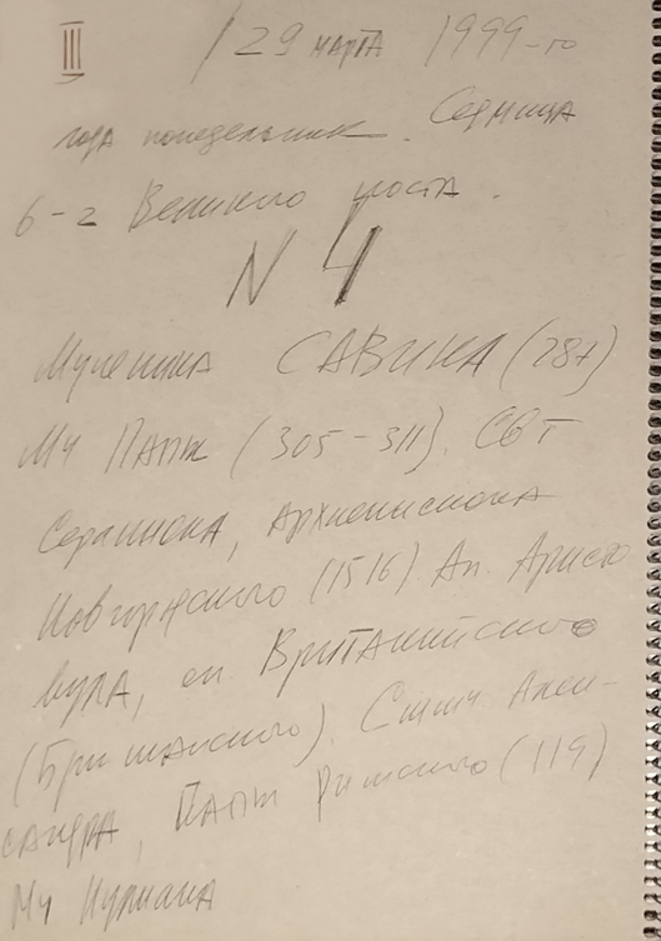 III / 29 марта 1999-го
года понедельник. Седмица
6-я Великого поста.
N 4
Мученика САВИНА (287)
Мч Папы (305-311). Свт
Серапиона, Архиепископа
Новгородского (1516) Ап. Аристо
вула, еп Вританийского
(Британского). Сщмч. Алек-
сандра, Папы Римского (119)
Мч Иулиана